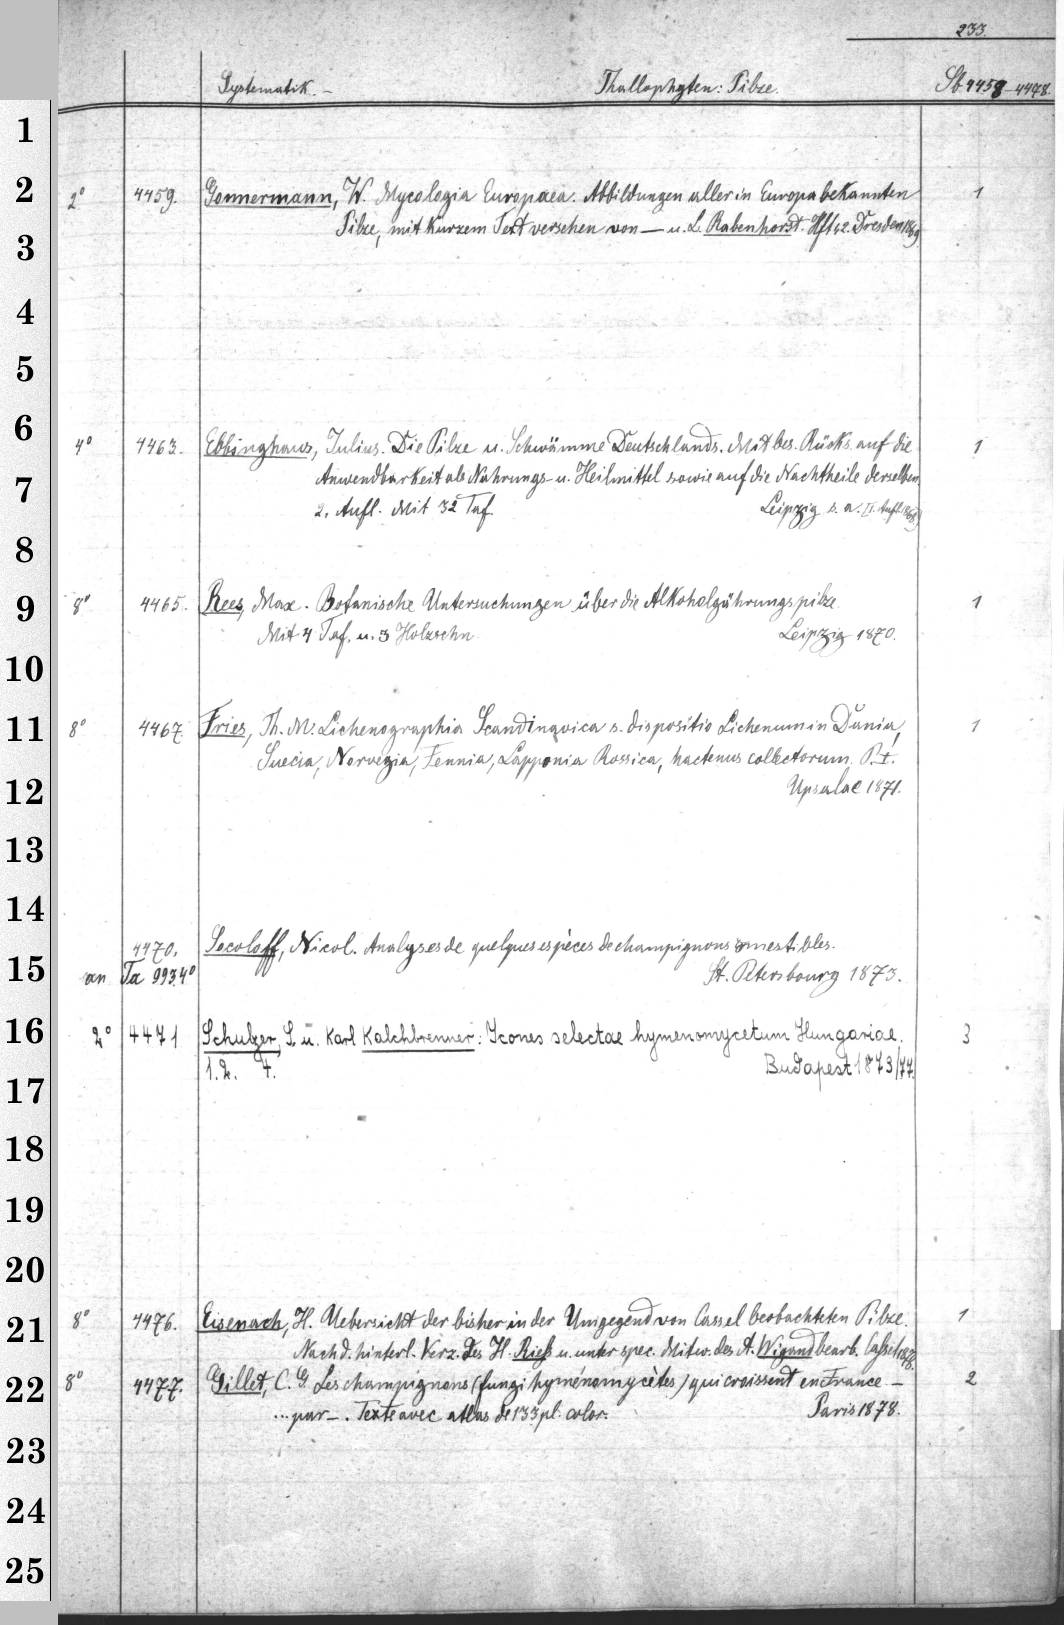 233.
Systematik. – Thallophyten: Pilze. Sb 4458–4478.
1
2
2° 4459. Gonnermann, W. Mycologia Europaea. Abbildungen aller in Europa bekannten 1
Pilze, mit kurzem Text versehen von — u. L. Rabenhorst. Hft 1,2. Dresden 1869
3
4
5
6
4° 4463. Ebbinghaus, Julius. Die Pilze u. Schwämme Deutschlands. Mit bes. Rücks. auf die 1
Anwendbarkeit als Nahrungs- u. Heilmittel sowie auf die Nachtheile derselben.
7
2. Aufl. Mit 32 Taf. Leipzig s. a. II. Aufl. 1868)
8
9
8° 4465. Rees, Max. Botanische Untersuchungen über die Alkoholgährungspilze. 1
Mit 4 Taf. u. 3 Holzschn. Leipzig 1870.
10
11
8° 4467 Fries, Th. M. Lichenographia Scandinavica s. dispositio Lichenum in Dania, 1
Suecia, Norvegia, Fennia, Lapponia Rossica, hactenus collectorum. P. I.
12
Upsalae 1871.
13
14
4470. Socoloff, Nicol. Analyses de quelques espèces de champignons comestibles.
15
an Ta 993.4° St. Petersbourg 1873.
16
2° 4471 Schulzer, S. u. Karl Kalchbrenner: Icones selectae hymenomycetum Hungariae. 3
1. 2. 4. Budapest 1873/77.
17
18
19
20
21
8° 4476. Eisenach, H. Uebersicht der bisher in der Umgegend von Cassel beobachteten Pilze. 1
Nach d. hinterl. Verz. des H. Rieß u. unter spec. Mitw. des A. Wigand bearb. Cassel 1878.
22
8° 4477. Gillet, C. G. Les champignons (fungi hyménomycètes) qui croissent en France – 2
... par –. Texte avec atlas de 133 pl. color. Paris 1878.
23
24
25